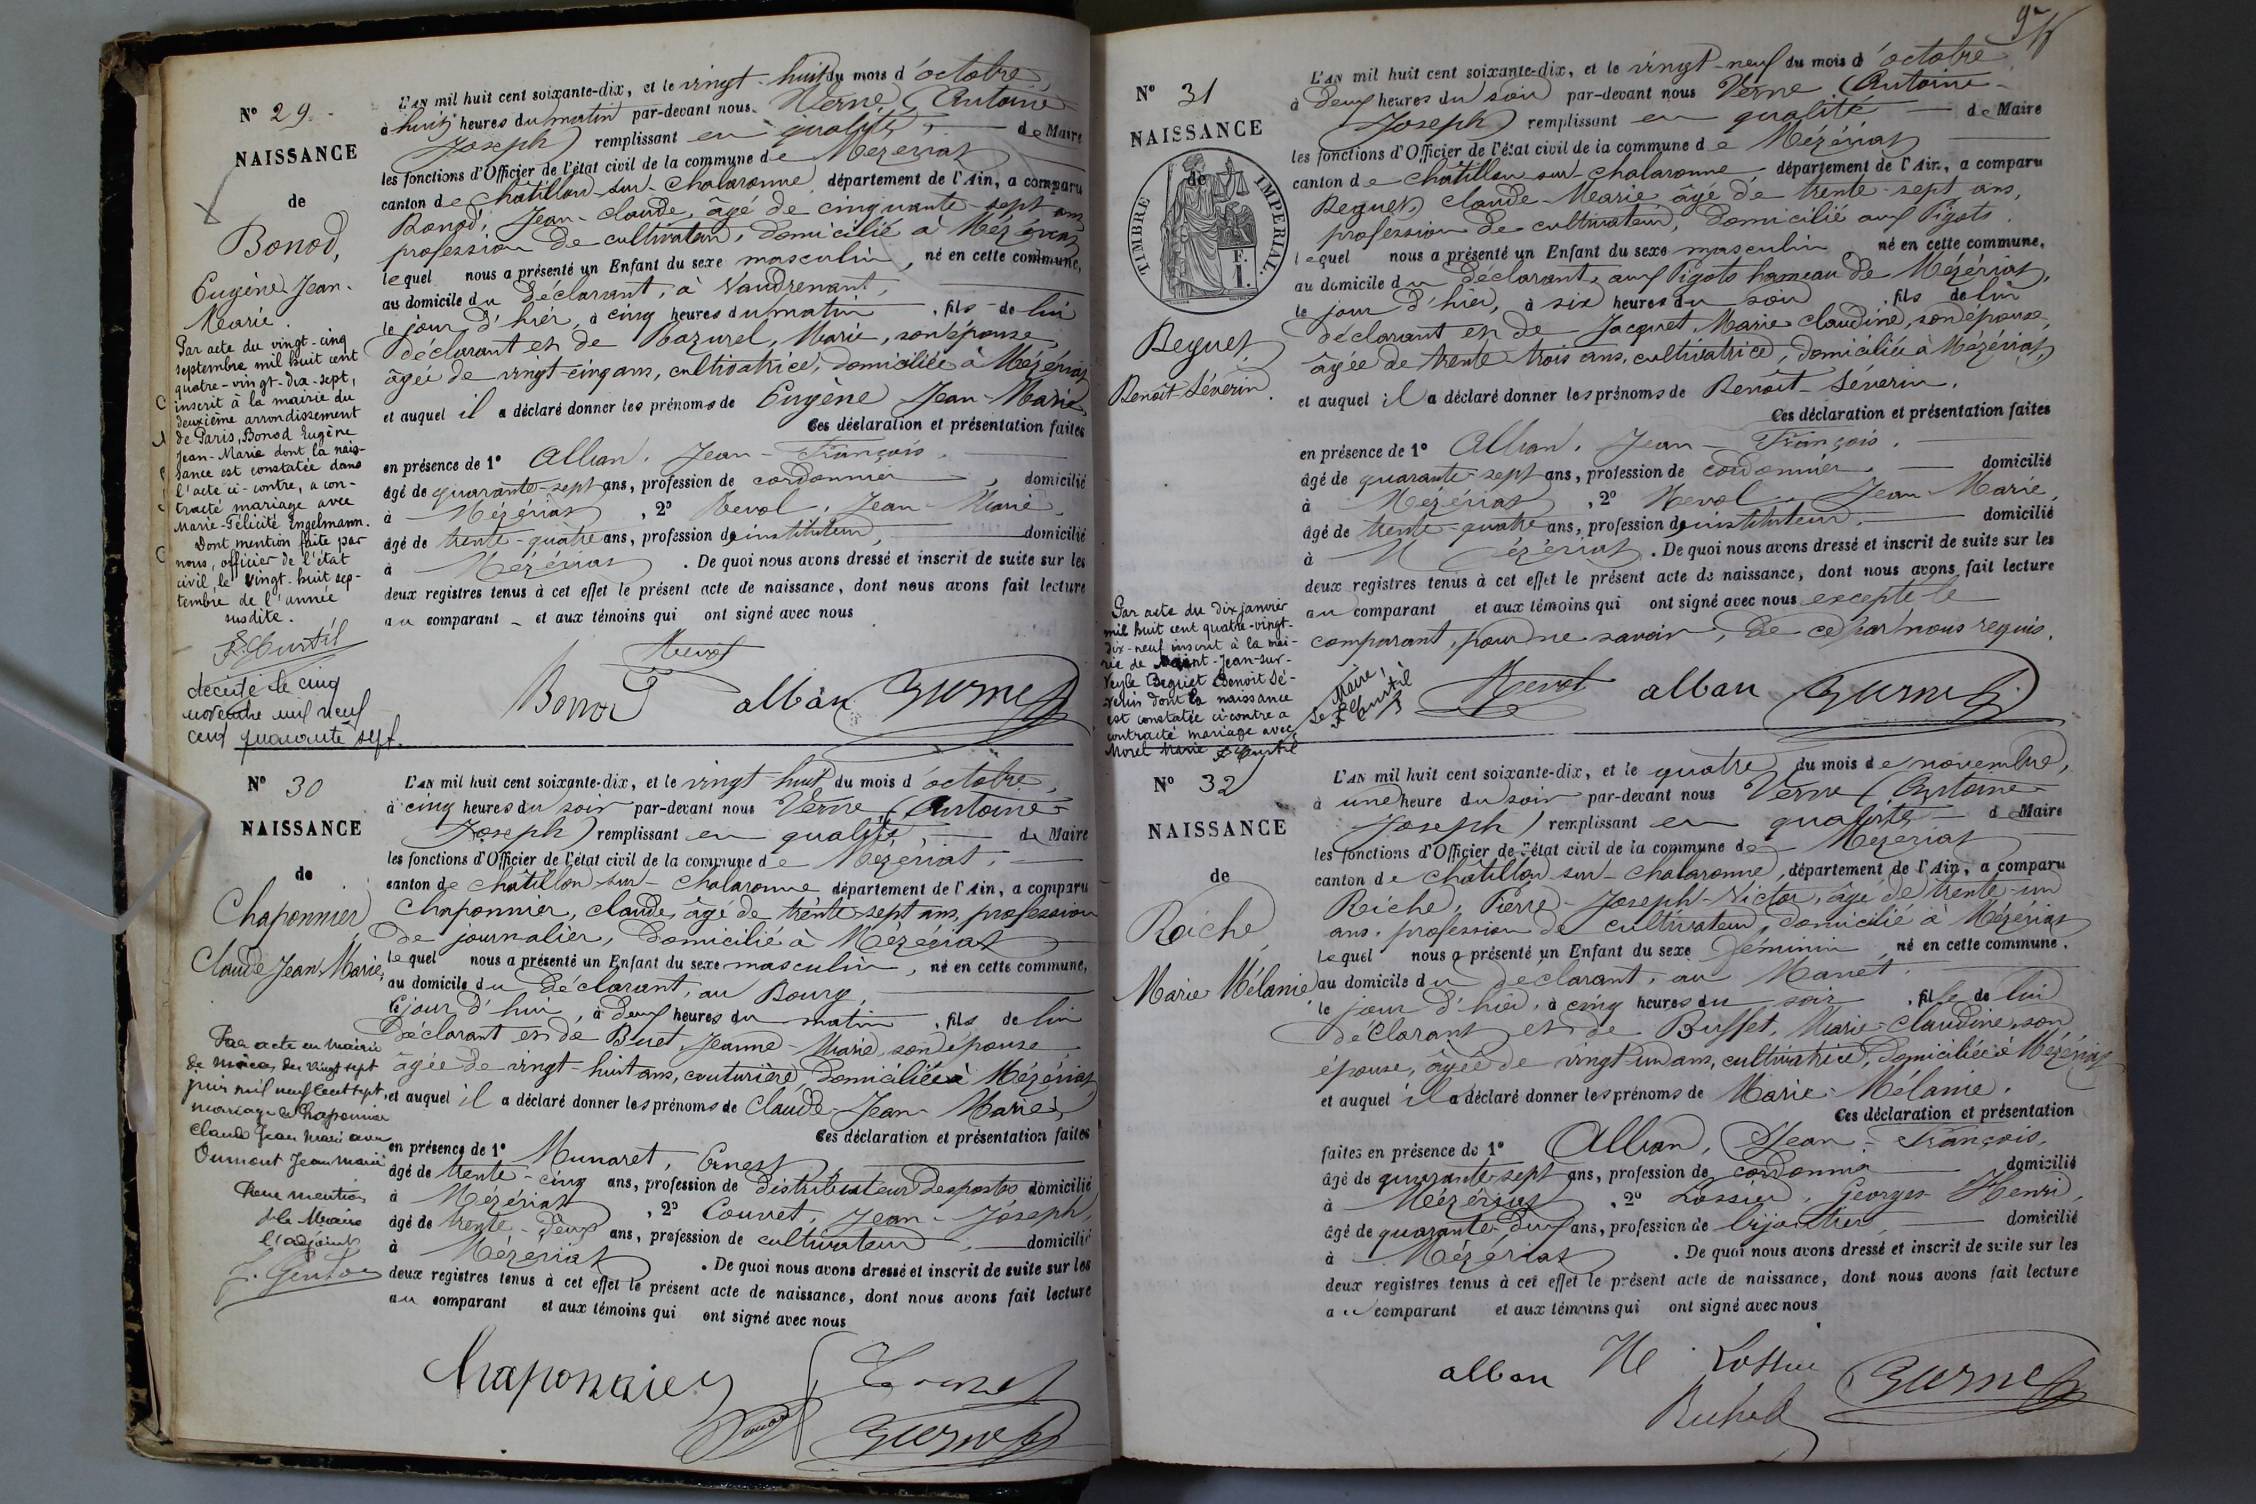 N° 29.
NAISSANCE
de
Bonod,
Eugène Jean-
Marie.
Par acte du vingt-cinq
septembre mil huit cent
quatre-vingt-dix-sept,
inscrit à la mairie du
deuxième arrondissement
de Paris, Bonod Eugène
Jean-Marie dont la nais-
sance est constatée dans
l'acte ci-contre, a con-
tracté mariage avec
Marie-Félicité Engelmann.
Dont mention faite par
nous, officier de l'état
civil le vingt-huit sep-
tembre de l'année
susdite.
décédé le cinq
novembre mil neuf
cent quarante sept.
L'AN mil huit cent soixante-dix, et le vingt-huit du mois d'octobre,
à huit heures du matin par-devant nous Verne (Antoine
Joseph) remplissant en qualité de Maire
les fonctions d'Officier de l'état civil de la commune de Mézériat
canton de Châtillon-sur-Chalaronne, département de l'Ain, a comparu
Bonod, Jean-Claude, âgé de cinquante-sept ans,
profession de cultivateur, domicilié à Mézériat,
lequel nous a présenté un Enfant du sexe masculin, né en cette commune,
au domicile du déclarant, à Vaudrenant,
le jour d'hier, à cinq heures du matin, fils de lui
déclarant et de Mazurel, Marie, son épouse,
âgée de vingt-cinq ans, cultivatrice, domiciliée à Mézériat
et auquel il a déclaré donner les prénoms de Eugène Jean-Marie
Ces déclaration et présentation faites
en présence de 1° Alban, Jean-François,
âgé de quarante-sept ans, profession de cordonnier, domicilié
à Mézériat, 2° Revol, Jean-Marie,
âgé de trente-quatre ans, profession d'instituteur, domicilié
à Mézériat. De quoi nous avons dressé et inscrit de suite sur les
deux registres tenus à cet effet le présent acte de naissance, dont nous avons fait lecture
au comparant et aux témoins qui ont signé avec nous
Revol
Bonod alban Verne
N° 30
NAISSANCE
de
Chaponnier
Claude Jean Marie,
Par acte en Mairie
de du vingt sept
juin mil neuf cent sept,
mariage de Chaponnier
Claude Jean Marie avec
Dumont Jean Marie
Pour mention
Le Maire
l'adjoint
L'AN mil huit cent soixante-dix, et le vingt-huit du mois d'octobre,
à cinq heures du soir par-devant nous Verne (Antoine
Joseph) remplissant en qualité de Maire
les fonctions d'Officier de l'état civil de la commune de Mézériat,
canton de Châtillon-sur-Chalaronne département de l'Ain, a comparu
Chaponnier, Claude, âgé de trente-sept ans, profession
de journalier, domicilié à Mézériat
lequel nous a présenté un Enfant du sexe masculin, né en cette commune,
au domicile du déclarant, au Bourg,
le jour d'hui, à deux heures du matin, fils de lui
déclarant et de Buet, Jeanne-Marie, son épouse
âgée de vingt-huit ans, couturière, domiciliée à Mézériat,
et auquel il a déclaré donner les prénoms de Claude-Jean-Marie
Ces déclaration et présentation faites
en présence de 1° Munaret, Ernest
âgé de trente-cinq ans, profession de distributeur des postes domicilié
à Mézériat, 2° Couvret, Jean-Joseph,
âgé de trente-deux ans, profession de cultivateur, domicilié
à Mézériat. De quoi nous avons dressé et inscrit de suite sur les
deux registres tenus à cet effet le présent acte de naissance, dont nous avons fait lecture
au comparant et aux témoins qui ont signé avec nous
Chaponnier
Verne
N° 31
NAISSANCE
de
TIMBRE IMPERIAL.
F.
1.
Beguet,
Benoît-Séverin.
Par acte du dix janvier
mil huit cent quatre-vingt-
dix-neuf inscrit à la mai-
rie de Saint-Jean-sur-
Veyle Beguet Benoît Sé-
verin dont la naissance
est constatée ci-contre a
contracté mariage avec
Morel Marie
Le Maire,
L'AN mil huit cent soixante-dix, et le vingt-neuf du mois d'octobre
à deux heures du soir par-devant nous Verne (Antoine-
Joseph) remplissant en qualité de Maire
les fonctions d'Officier de l'état civil de la commune de Mézériat
canton de Châtillon-sur-Chalaronne, département de l'Ain, a comparu
Beguet, Claude-Marie âgé de trente-sept ans,
profession de cultivateur, domicilié aux Pigots,
lequel nous a présenté un Enfant du sexe masculin né en cette commune,
au domicile du déclarant, aux Pigots hameau de Mézériat,
le jour d'hier, à six heures du soir, fils de lui
déclarant et de Jacquet, Marie Claudine, son épouse,
âgée de trente-trois ans, cultivatrice, domiciliée à Mézériat,
et auquel il a déclaré donner les prénoms de Benoît-Séverin.
Ces déclaration et présentation faites
en présence de 1° Alban, Jean-François,
âgé de quarante-sept ans, profession de cordonnier, domicilié
à Mézériat, 2° Revol, Jean-Marie,
âgé de trente-quatre ans, profession d'instituteur, domicilié
à Mézériat. De quoi nous avons dressé et inscrit de suite sur les
deux registres tenus à cet effet le présent acte de naissance, dont nous avons fait lecture
au comparant et aux témoins qui ont signé avec nous excepté le
comparant, pour ne savoir, de ce par nous requis.
Revol alban Verne
N° 32
NAISSANCE
de
Riche
Marie Mélanie
L'AN mil huit cent soixante-dix, et le quatre du mois de novembre,
à une heure du soir par-devant nous Verne (Antoine
Joseph) remplissant en qualité de Maire
les fonctions d'Officier de l'état civil de la commune de Mézériat
canton de Châtillon-sur-Chalaronne, département de l'Ain, a comparu
Riche, Pierre-Joseph-Victor, âgé de trente-un
ans, profession de cultivateur, domicilié à Mézériat
lequel nous a présenté un Enfant du sexe féminin, né en cette commune,
au domicile du déclarant, au Manet,
le jour d'hier, à cinq heures du soir, fille de lui
déclarant et de Buffet, Marie-Claudine, son
épouse, âgée de vingt-un ans, cultivatrice, domiciliée à Mézériat
et auquel il a déclaré donner les prénoms de Marie-Mélanie.
Ces déclaration et présentation
faites en présence de 1° Alban, Jean-François,
âgé de quarante-sept ans, profession de cordonnier domicilié
à Mézériat, 2° Lossier, Georges Henri,
âgé de quarante-deux ans, profession de bijoutier, domicilié
à Mézériat. De quoi nous avons dressé et inscrit de suite sur les
deux registres tenus à cet effet le présent acte de naissance, dont nous avons fait lecture
au comparant et aux témoins qui ont signé avec nous
alban H Lossier Verne